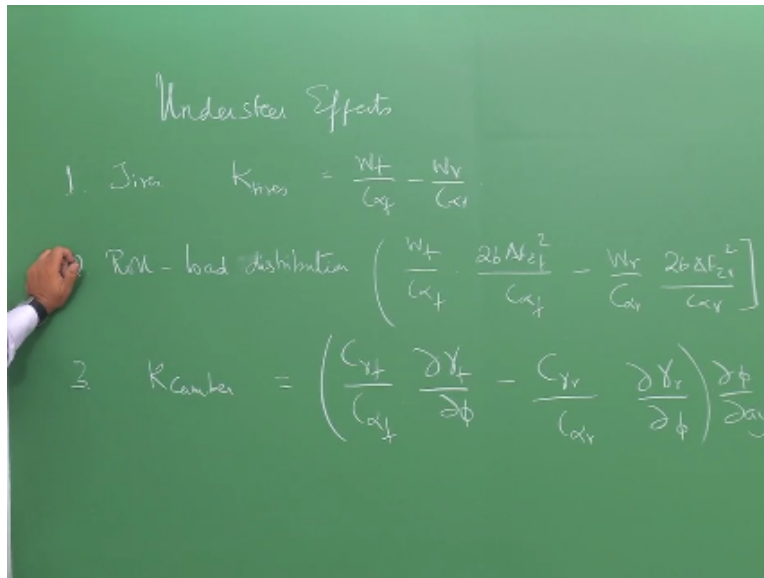 Understeer Effects
1. Tires K_tires = W_f/C_αf - W_r/C_αr
Roll - load distribution ( W_f/C_αf · 2b ΔF_zf²/C_αf - W_r/C_αr 2b ΔF_zr²/C_αr ]
3. K_camber = ( C_γf/C_αf ∂γ_f/∂ϕ - C_γr/C_αr ∂γ_r/∂ϕ ) ∂ϕ/∂ay